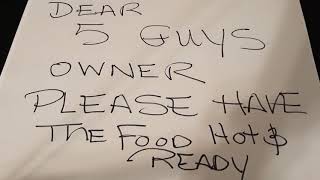 DEAR
5 GUYS
OWNER
PLEASE HAVE
THE FOOD HOT &
READY